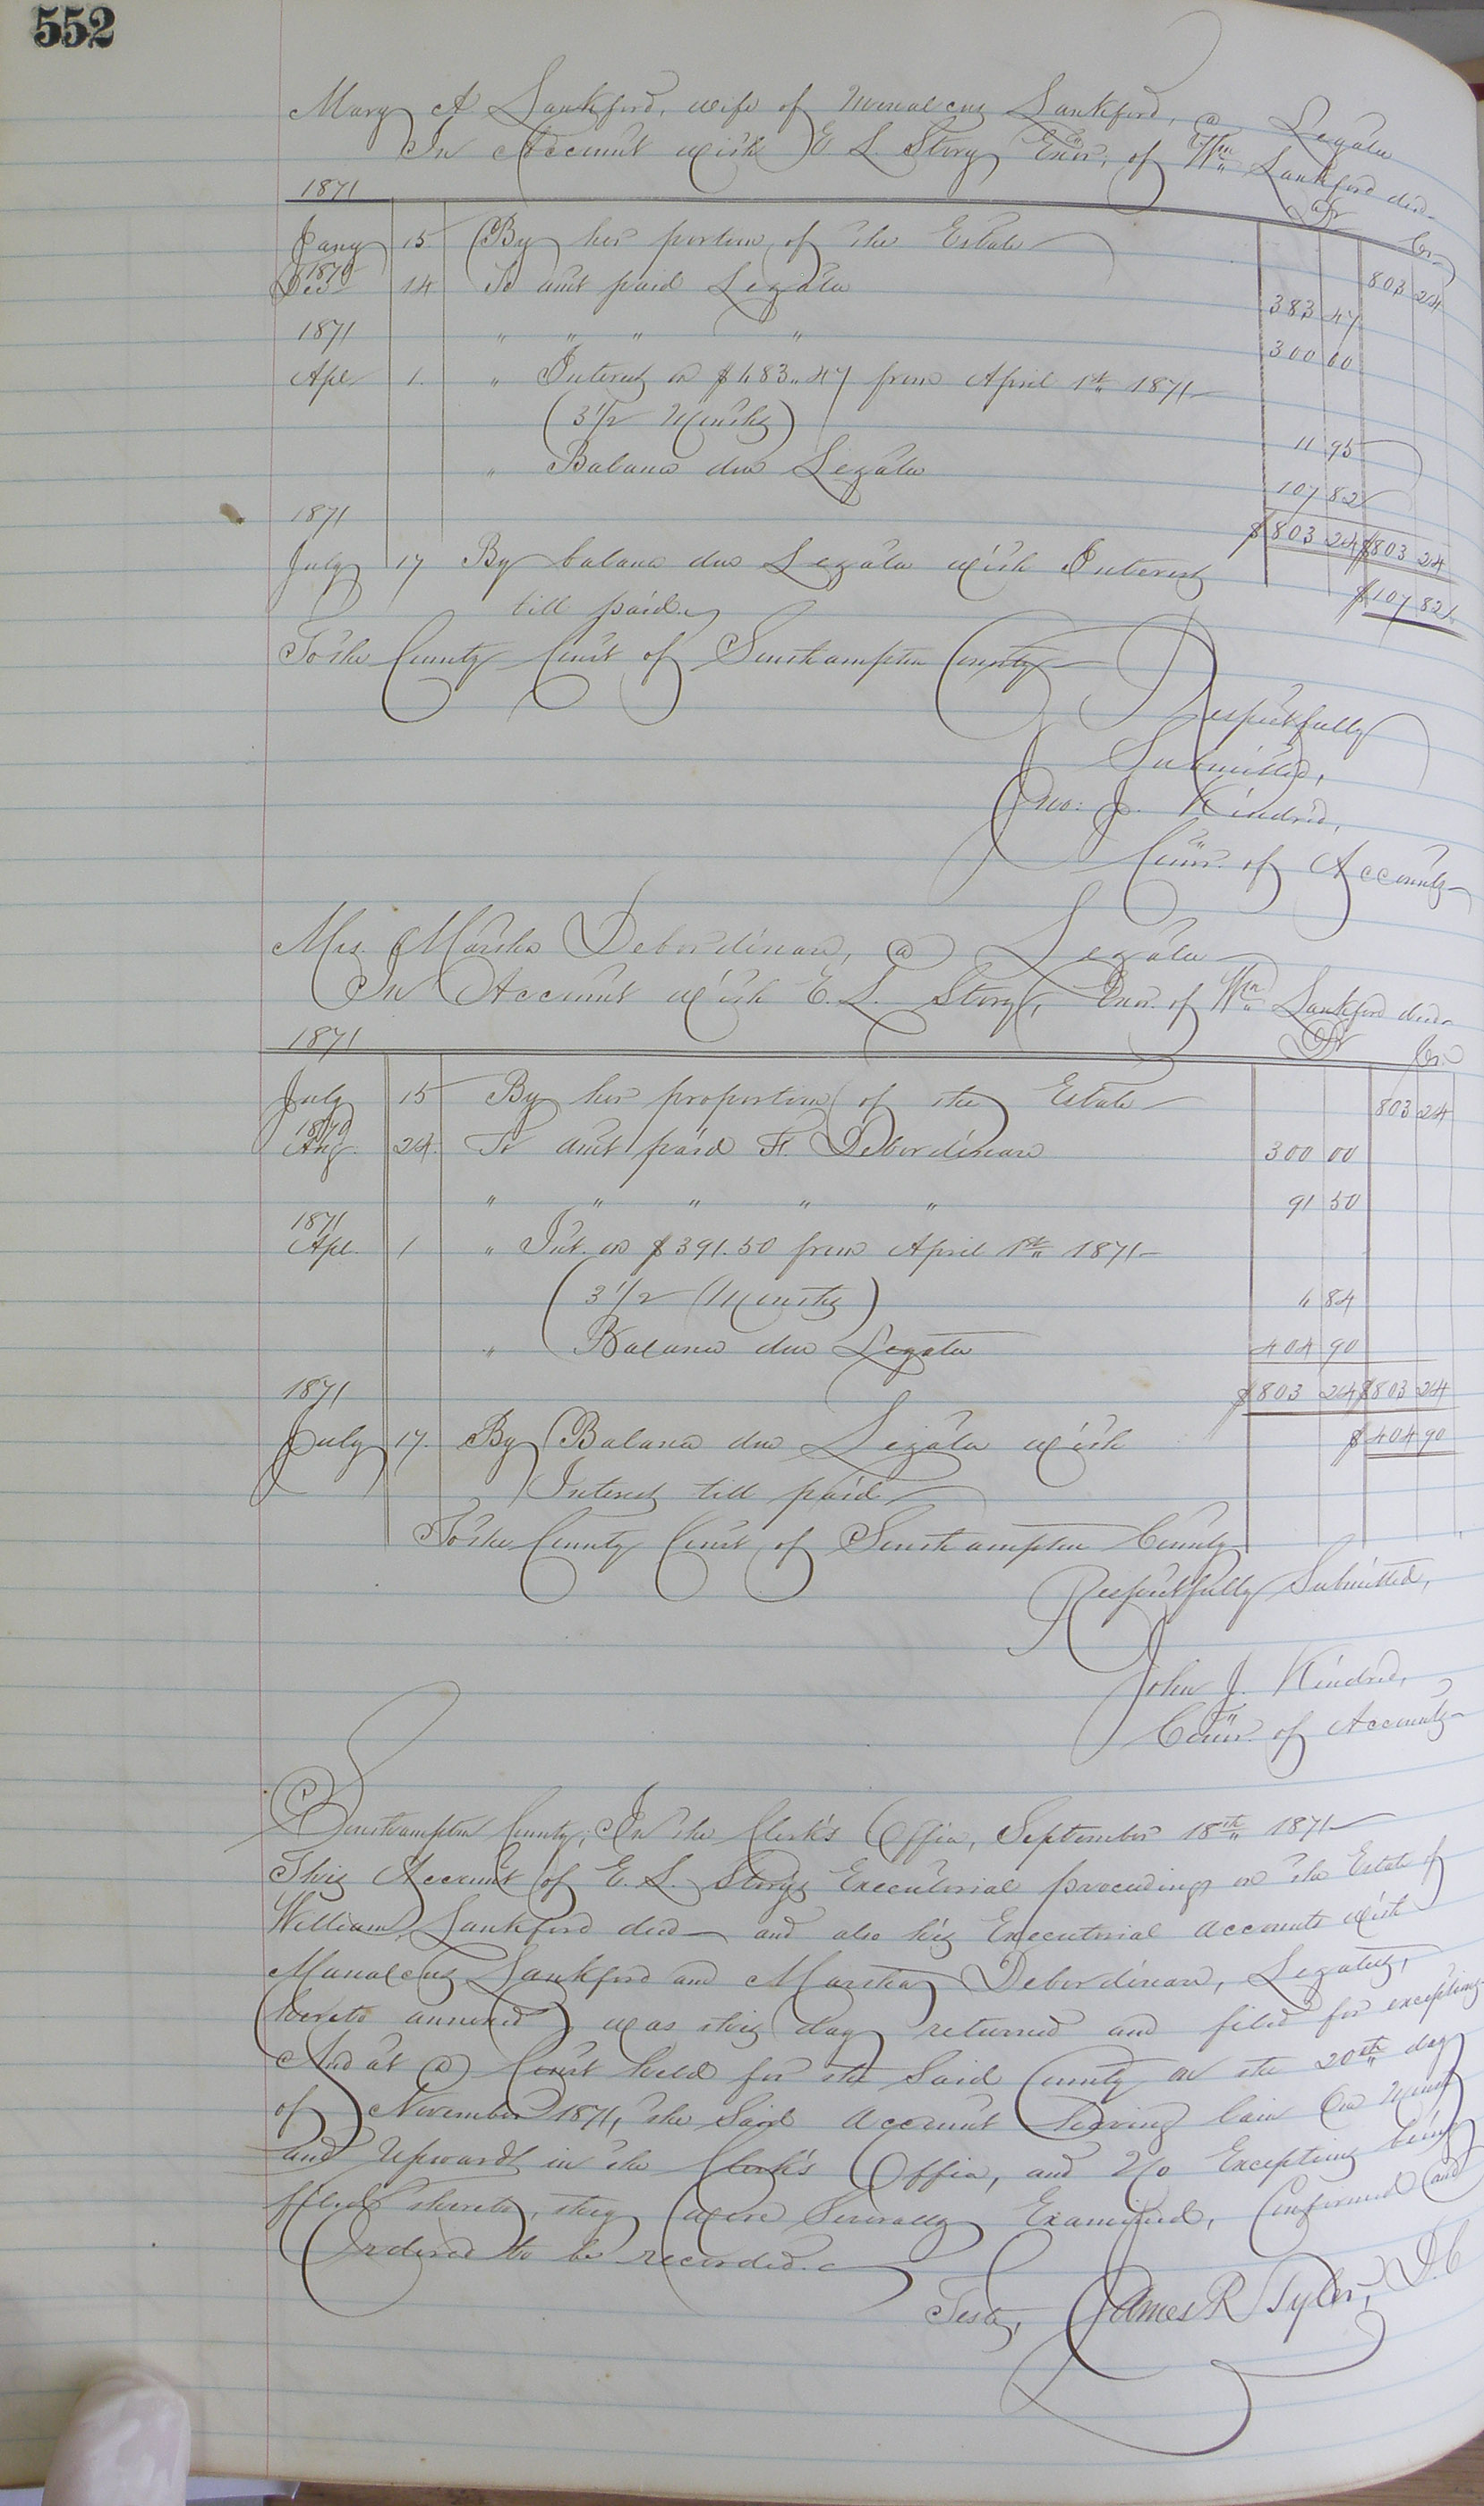 552
Mary A Lankford, wife of Menalcus Lankford, a Legatee
In Account with E. L. Story Exor. of Wm Lankford decd.
1871 Dr Cr
Jany 15 By her portion of the Estate 803 24
1870
Dec 14 To amt paid Legatee 383 47
1871 " " " " 300 00
Apl 1. " Interest on $683.47 from April 1st 1871
(3 1/2 Months) 11 95
" Balance due Legatee 107 82
1871 $803 24 $803 24
July 17 By balance due Legatee with Interest
till paid $107 82
To the County Court of Southampton County
Respectfully
Submitted,
Jno: J. Kindred,
Comr. of Accounts
Mrs. Martha Deberdinan, a Legatee
In Account with E. L. Story, Exor. of Wm Lankford decd.
1871 Dr Cr
July 15 By her proportion of the Estate 803 24
1870
Aug. 24. To amt paid F. Deberdinan 300 00
" " " " " 91 50
1871
Apl. 1 " Int. on $391.50 from April 1st 1871
(3 1/2 Months) 6 84
" Balance due Legatee 404 90
1871 $803 24 $803 24
July 17. By Balance due Legatee with $404 90
Interest till paid
To the County Court of Southampton County
Respectfully Submitted,
John J. Kindred,
Comr. of Accounts
Southampton County; In the Clerk's Office, September 18th 1871
This Account of E. L. Story's Executorial proceedings on the Estate of
William Lankford decd and also his Executorial accounts with
Manalcus Lankford and Martha Deberdinan, Legatees,
hereto annexed, was this day returned and filed for exceptions
And at a Court held for the Said County on the 20th day
of November 1871, the Said Account having lain One Month
and Upwards in the Clerk's Office, and No Exceptions being
filed thereto, they were Severally Examined, Confirmed and
Ordered to be recorded.
Teste, James R Tyler, D.C